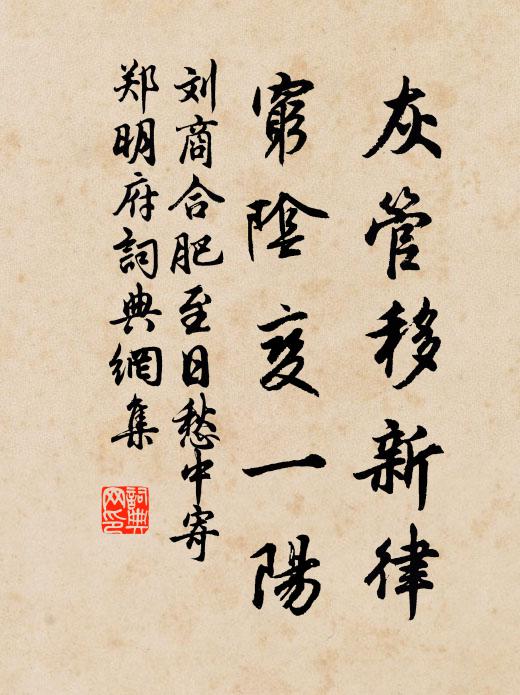 灰管移新律
窮陰变一陽
刘商合肥至日愁中寄
郑明府詞典網集
詞典网印